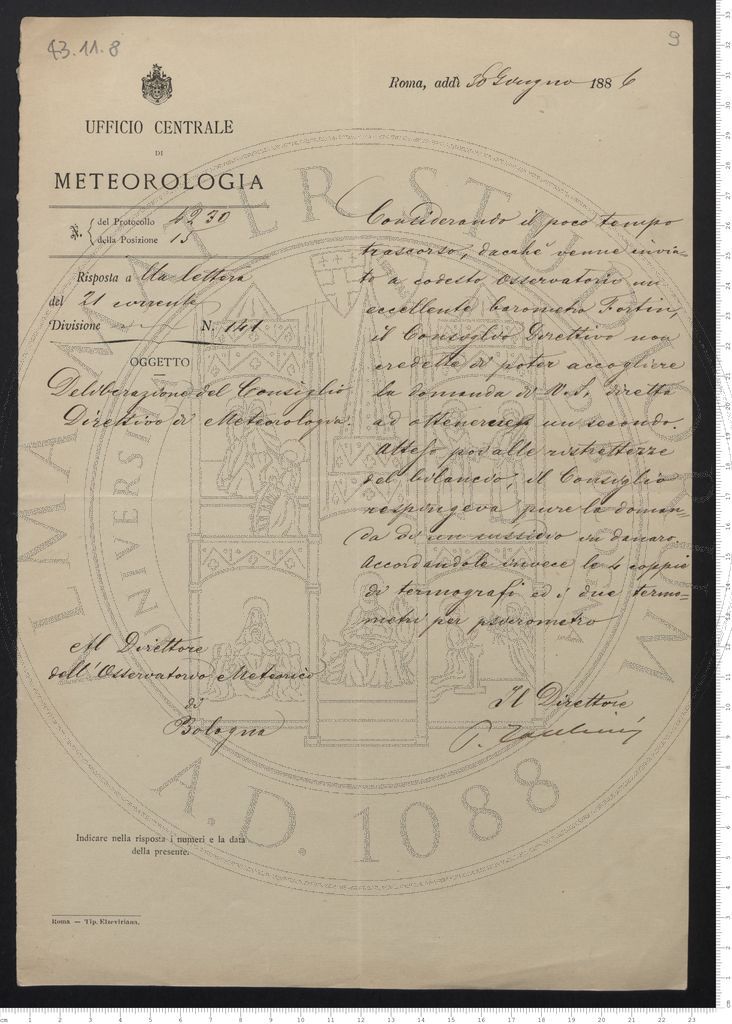 43.11.8
9
Roma, addì 30 Giugno 1886
UFFICIO CENTRALE
DI
METEOROLOGIA
N. del Protocollo 4230
della Posizione 15
Risposta a Ua lettera
del 21 corrente
Divisione N. 141
OGGETTO
Deliberazione del Consiglio
Direttivo di Meteorologia.
Considerando il poco tempo
trascorso, dacchè venne invia-
to a codesto Osservatorio un
eccellente barometro Fortin,
il Consiglio Direttivo non
credette di poter accogliere
la domanda di V.S. diretta
ad ottenerne un secondo.
Atteso poi alle ristrettezze
del bilancio, il Consiglio
respingeva pure la doman-
da di un sussidio in danaro.
Accordandole invece le 4 coppie
di termografi ed i due termo-
metri per psicrometro
Al Direttore
dell'Osservatorio Meteorico
di
Bologna
Il Direttore
P. Tacchini
Indicare nella risposta i numeri e la data
della presente.
Roma — Tip. Elzeviriana.
ALMA MATER STUDIORUM
UNIVERSI
A.D. 1088